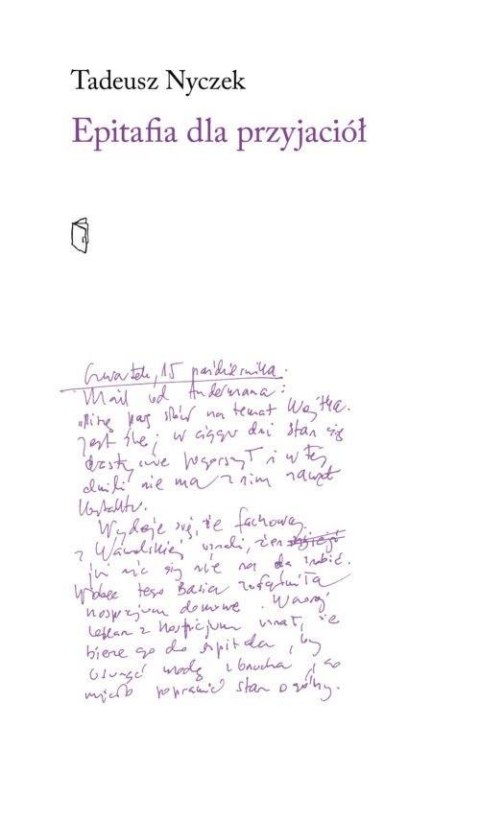 Tadeusz Nyczek
Epitafia dla przyjaciół
Czwartek, 15 października.
Mail od Andermana:
"Piszę parę słów na temat Wojtka.
Jest źle; w ciągu dni stan się
drastycznie pogorszył i w tej
chwili nie ma z nim nawet
kontaktu.
Wydaje się, że fachowcy
z Wawelskiej uznali, że
już nic się nie da zrobić.
Wobec tego Basia załatwiła
hospicjum domowe. Wczoraj
lekarz z hospicjum uznał, że
bierze go do szpitala, by
usunąć wodę z brzucha, co
miało poprawić stan ogólny.